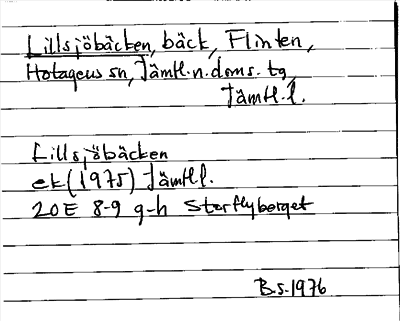 Lillsjöbäcken, bäck, Flinten,
Hotagens sn, Jämtl.n.doms.tg,
Jämtl.l.
Lillsjöbäcken
ek (1975) Jämtl.l.
20E 8-9 g-h Storflyberget
B.S.1976